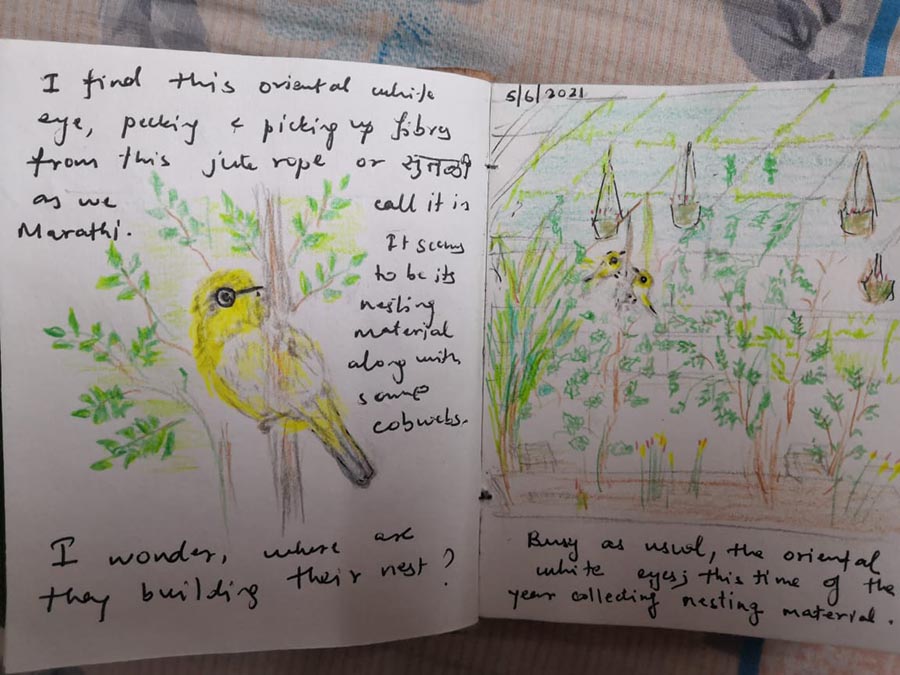 I find this oriental white
eye, pecking & picking up fibres
from this jute rope or सुतळी
as we call it in
Marathi.
It seems
to be its
nesting
material
along with
some
cobwebs.
I wonder, where are
they building their nest?
5/6/2021
Busy as usual, the oriental
white eyes; this time of the
year collecting nesting material.